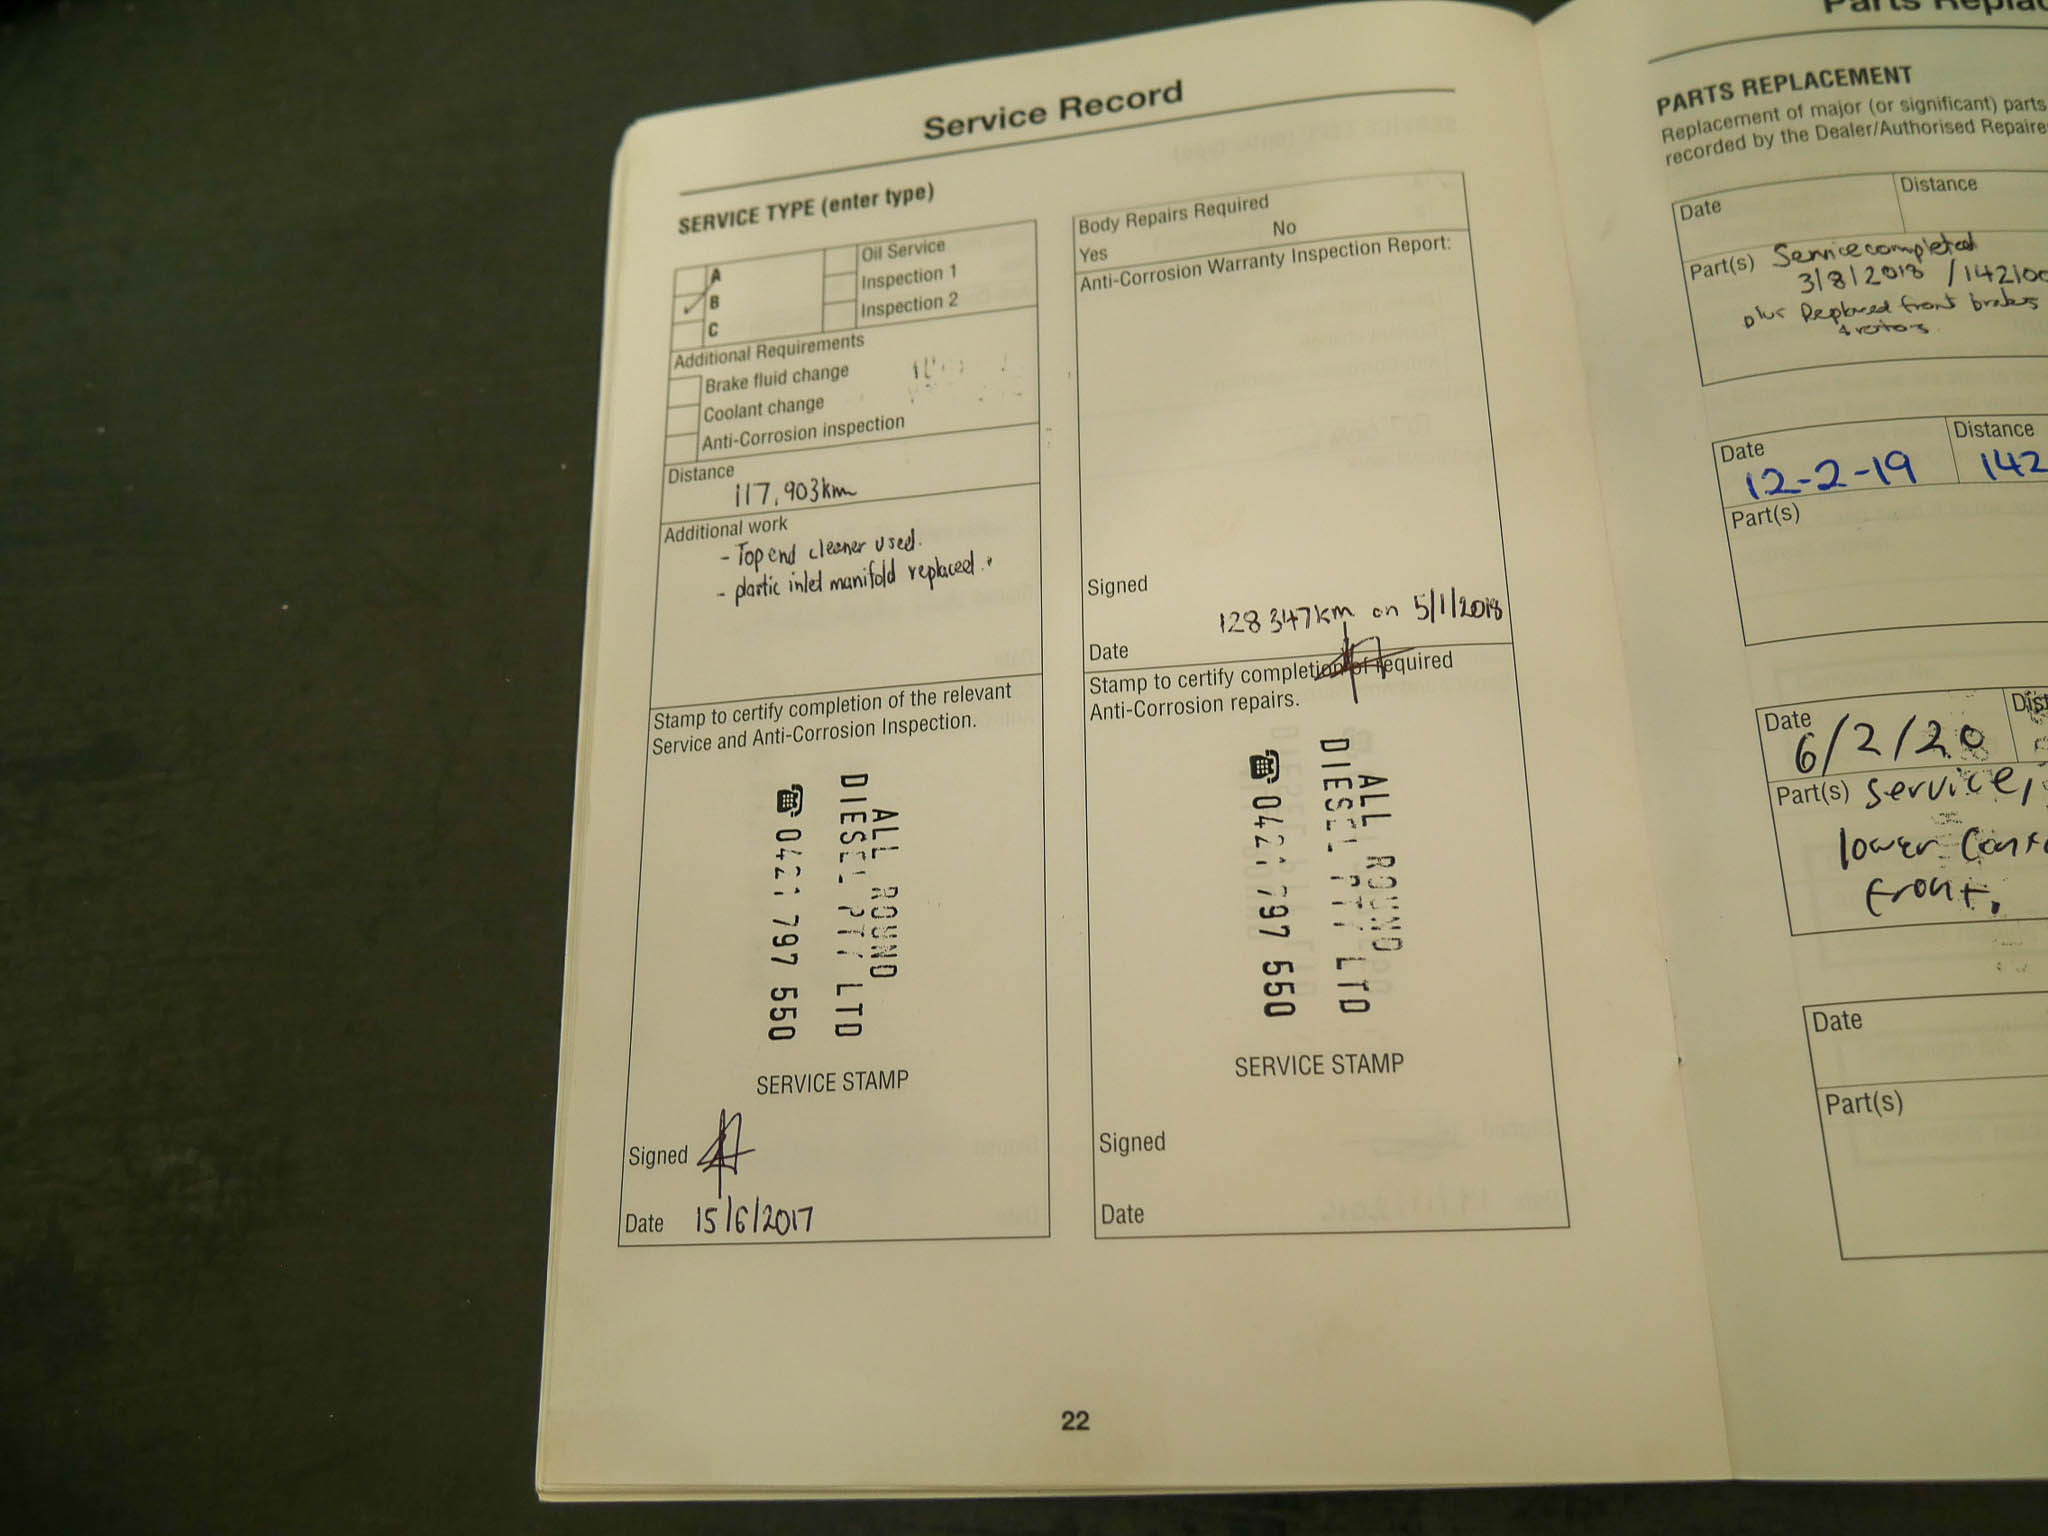 Service Record
SERVICE TYPE (enter type)
A
B
C
Oil Service
Inspection 1
Inspection 2
Additional Requirements
Brake fluid change
Coolant change
Anti-Corrosion inspection
Distance
117,903km
Additional work
- Top end cleaner used.
- plastic inlet manifold replaced.
Stamp to certify completion of the relevant
Service and Anti-Corrosion Inspection.
ALL ROUND
DIESEL PTY LTD
0421 797 550
SERVICE STAMP
Signed
Date 15/6/2017
Body Repairs Required
Yes No
Anti-Corrosion Warranty Inspection Report:
Signed
128347km on 5/1/2018
Date
Stamp to certify completion of required
Anti-Corrosion repairs.
ALL ROUND
DIESEL PTY LTD
0421 797 550
SERVICE STAMP
Signed
Date
22
Parts
PARTS REPLACEMENT
Replacement of major (or significant) parts
recorded by the Dealer/Authorised
Date
Distance
Part(s) Service completed
3/8/2018 /14210
plus Replaced front brakes
+ rotors.
Date
12-2-19
Distance
142
Part(s)
Date
6/2/20
Part(s) Service,
lower
front.
Date
Part(s)